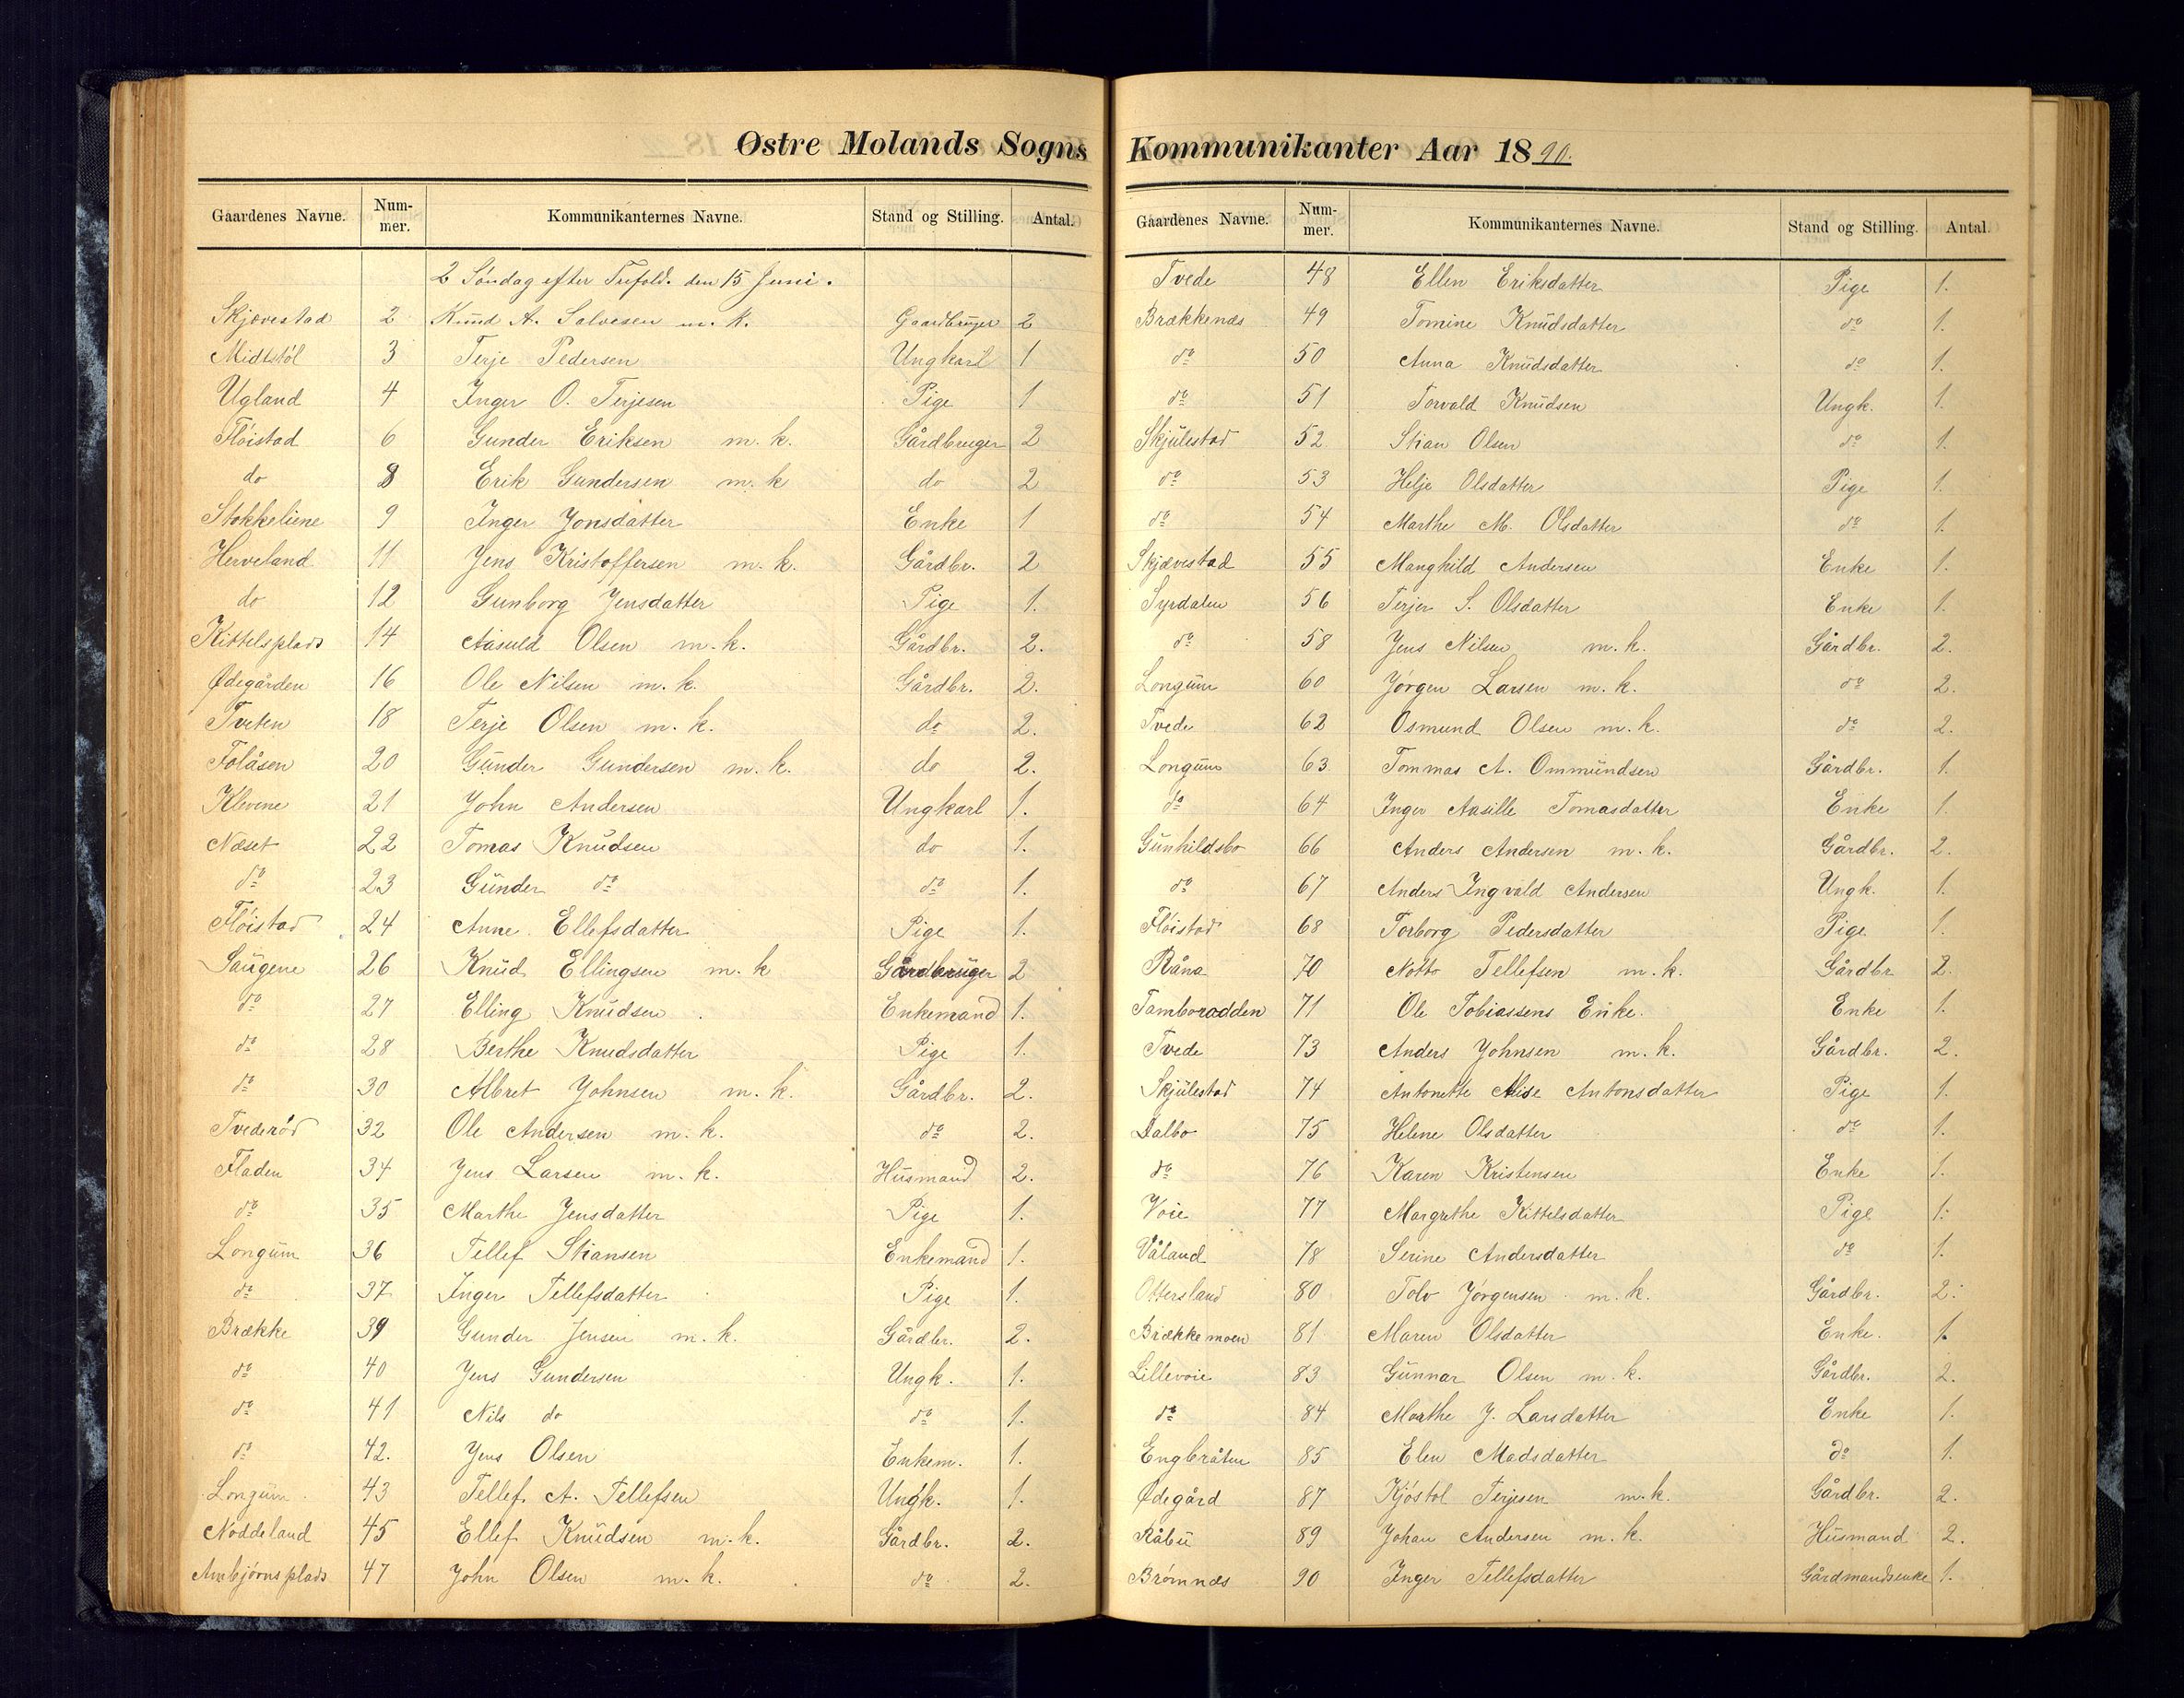 Østre Molands Sogns
Gaardenes Navne. Num-mer. Kommunikanternes Navne. Stand og Stilling. Antal.
2 Söndag efter Trefold. den 15 Juni.
Skjævestad 2 Knud A. Salvesen m. k. Gaardbruger 2
Midtstöl 3 Terje Pedersen Ungkarl 1
Ugland 4 Inger O. Terjesen Pige 1
Flöistad 6 Gunder Eriksen m. k. Gårdbruger 2
do 8 Erik Gundersen m. k do 2
Stokkeliene 9 Inger Jonsdatter Enke 1
Herveland 11 Jens Kristoffersen m. k. Gårdbr. 2
do 12 Gunborg Jensdatter Pige 1.
Kittelsplads 14 Aasuld Olsen m. k. Gårdbr. 2.
Ødegården 16 Ole Nilsen m. k. Gårdbr. 2.
Tveten 18 Terje Olsen m. k. do 2.
Folåsen 20 Gunder Gundersen m. k. do 2.
Klevene 21 John Andersen Ungkarl 1.
Næset 22 Tomas Knudsen do 1.
do 23 Gunder do do 1.
Flöistad 24 Anne Ellefsdatter Pige 1.
Saugene 26 Knud Ellingsen m. k Gårdbruger 2
do 27 Elling Knudsen Enkemand 1.
do 28 Berthe Knudsdatter Pige 1.
do 30 Albret Johnsen m. k. Gårdbr. 2.
Tvederöd 32 Ole Andersen m. k. do 2.
Fladen 34 Jens Larsen m. k. Husmand 2.
do 35 Marthe Jensdatter Pige 1.
Longum 36 Tellef Stiansen Enkemand 1.
do 37 Inger Tellefsdatter Pige 1.
Brække 39 Gunder Jensen m. k. Gårdbr. 2.
do 40 Jens Gundersen Ungk. 1.
do 41 Nils do do 1.
do 42. Jens Olsen Enkem. 1.
Longum 43 Tellef A. Tellefsen Ungk. 1.
Noddeland 45 Ellef Knudsen m. k. Gårdbr. 2.
Ambjörnsplads 47 John Olsen m. k. do 2.
Kommunikanter Aar 1890.
Gaardenes Navne. Num-mer. Kommunikanternes Navne. Stand og Stilling. Antal.
Tvede 48 Ellen Eriksdatter Pige 1.
Brækkenæs 49 Tomine Knudsdatter do 1.
do 50 Anna Knudsdatter do 1.
do 51 Torvald Knudsen Ungk. 1.
Skjulestad 52 Stian Olsen do 1.
do 53 Helje Olsdatter Pige 1.
do 54 Marthe M. Olsdatter do 1.
Skjævestad 55 Manghild Andersen Enke 1.
Syrdalen 56 Terjer S. Olsdatter Enke 1.
do 58 Jens Nilsen m. k. Gårdbr. 2.
Longum 60 Jörgen Larsen m. k. do 2.
Tvede 62 Osmund Olsen m. k. do 2.
Longum 63 Tommas A. Ommundsen Gårdbr. 1.
do 64 Inger Aasille Tomasdatter Enke 1.
Gunhildsbo 66 Anders Andersen m. k. Gårdbr. 2.
do 67 Anders Ingvald Andersen Ungk. 1.
Flöistad 68 Torborg Pedersdatter Pige 1.
Råna 70 Notto Tellefsen m. k. Gårdbr 2.
Tamborodden 71 Ole Tobiassens Enke. Enke 1.
Tvede 73 Anders Johnsen m. k. Gårdbr. 2.
Skjulestad 74 Antonette Alise Antonsdatter Pige 1.
Dalbo 75 Helene Olsdatter do 1.
do 76 Karen Kristensen Enke 1.
Voie 77 Margrethe Kittelsdatter Pige 1.
Våland 78 Serine Andersdatter do 1.
Ottersland 80 Tolv Jörgensen m. k. Gårdbr. 2.
Brækkemoen 81 Maren Olsdatter Enke. 1.
Lillevoie 83 Gunnar Olsen m. k. Gårdbr. 2.
do 84 Marthe J. Larsdatter Enke 1.
Engbråten 85 Elen Madsdatter do 1.
Ødegård 87 Kjöstol Terjesen m. k. Gårdbr. 2.
Råbu 89 Johan Andersen m. k. Husmand 2.
Brömnæs 90 Inger Tellefsdatter Gårdmandsenke 1.